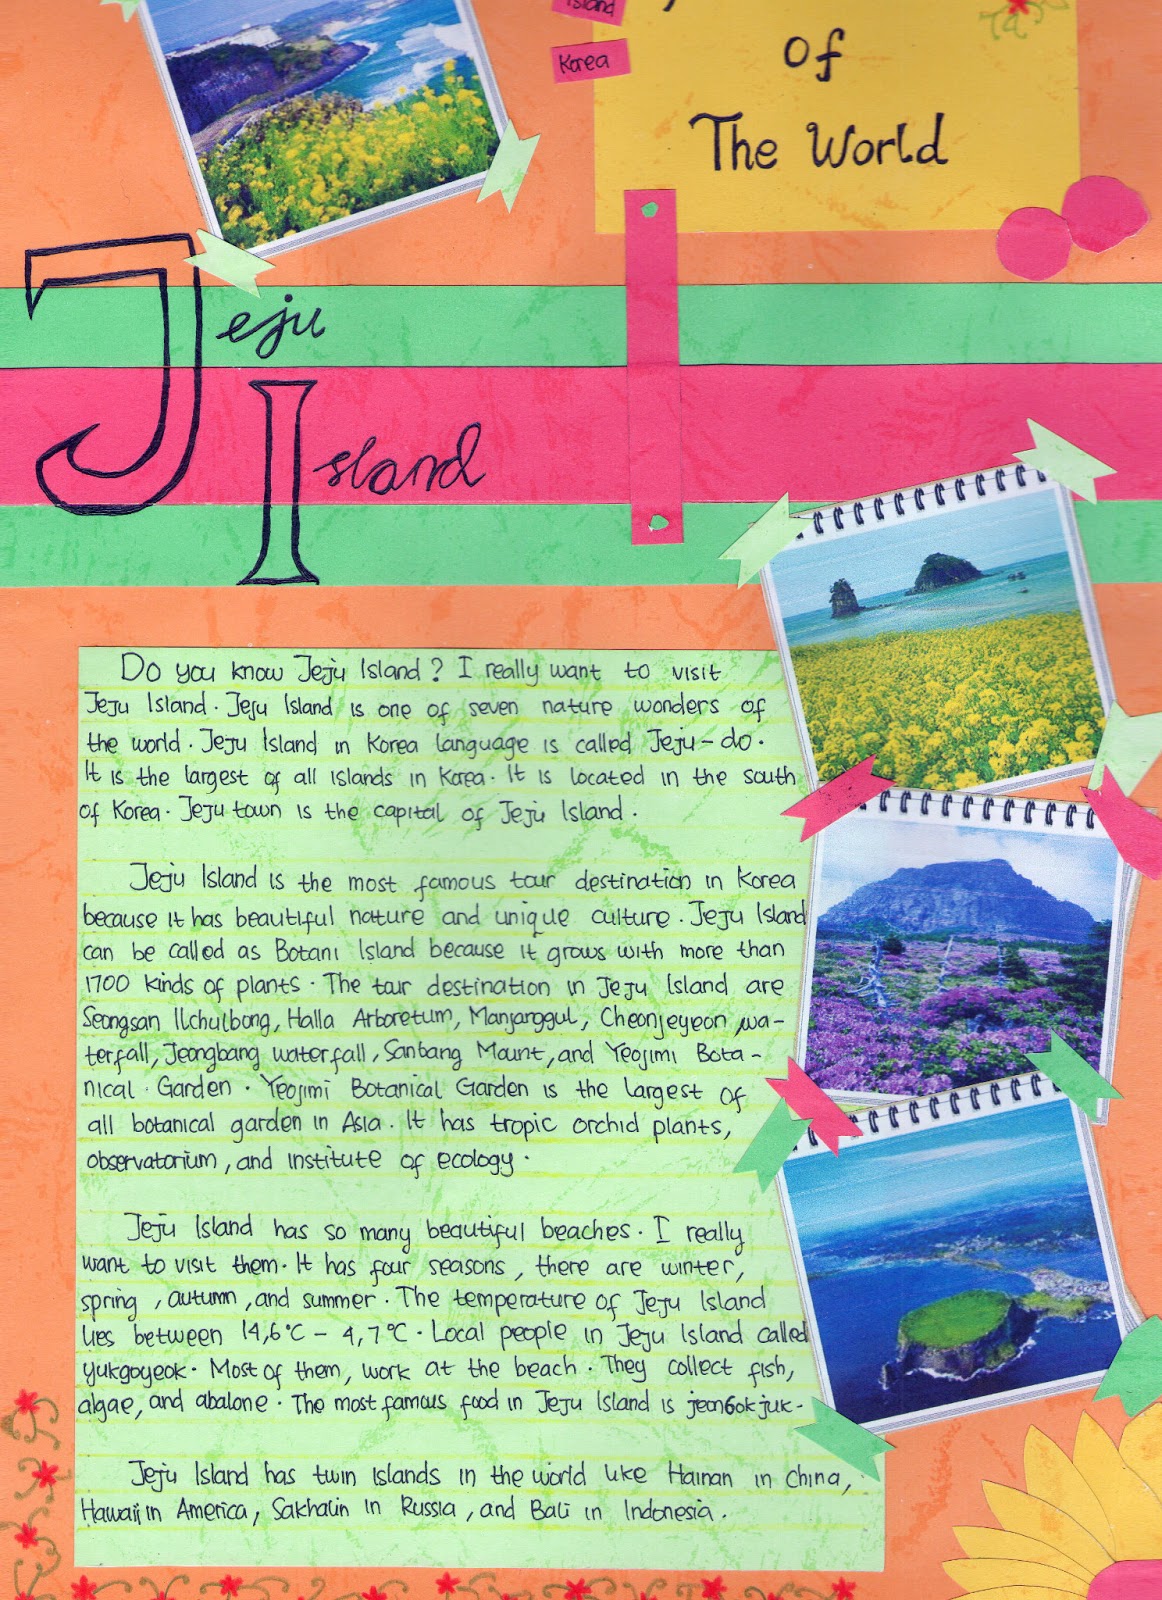 Island
Korea
of
The World
Jeju
Island
Do you know Jeju Island? I really want to visit
Jeju Island. Jeju Island is one of seven nature wonders of
the world. Jeju Island in Korea language is called Jeju-do.
It is the largest of all islands in Korea. It is located in the south
of Korea. Jeju town is the capital of Jeju Island.
Jeju Island is the most famous tour destination in Korea
because it has beautiful nature and unique culture. Jeju Island
can be called as Botani Island because it grows with more than
1700 kinds of plants. The tour destination in Jeju Island are
Seongsan Ilchulbong, Halla Arboretum, Manjanggul, Cheonjeyeon wa-
terfall, Jeongbang waterfall, Sanbang Mount, and Yeojimi Bota-
nical. Garden. Yeojimi Botanical Garden is the largest of
all botanical garden in Asia. It has tropic orchid plants,
observatorium, and institute of ecology.
Jeju Island has so many beautiful beaches. I really
want to visit them. It has four seasons, there are winter,
spring, autumn, and summer. The temperature of Jeju Island
lies between 14,6°C - 4,7°C. Local people in Jeju Island called
yukgoyeok. Most of them, work at the beach. They collect fish,
algae, and abalone. The most famous food in Jeju Island is jeonbokjuk.
Jeju Island has twin islands in the world like Hainan in China,
Hawaii in America, Sakhalin in Russia, and Bali in Indonesia.